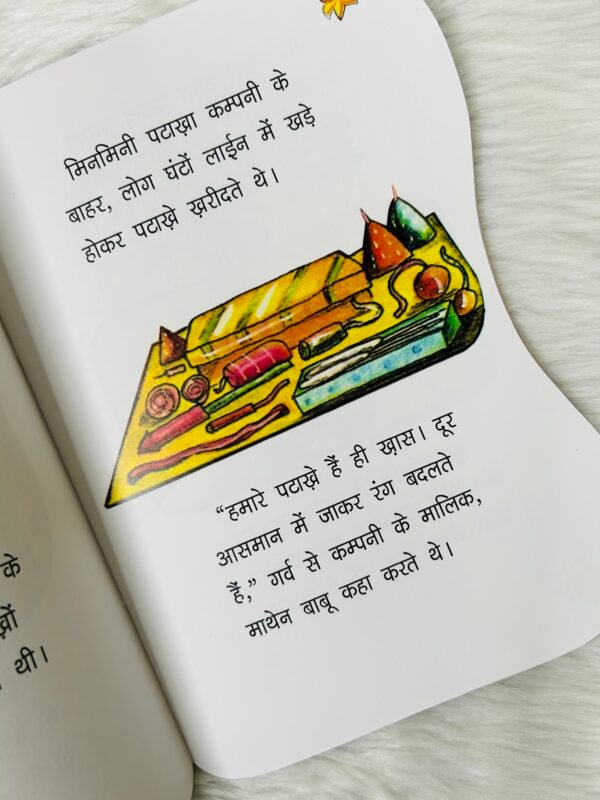 मिनमिनी पटाख़ा कम्पनी के
बाहर, लोग घंटों लाईन में खड़े
होकर पटाख़े ख़रीदते थे।
“हमारे पटाख़े हैं ही ख़ास। दूर
आसमान में जाकर रंग बदलते
हैं,” गर्व से कम्पनी के मालिक,
माथेन बाबू कहा करते थे।
के
थी।